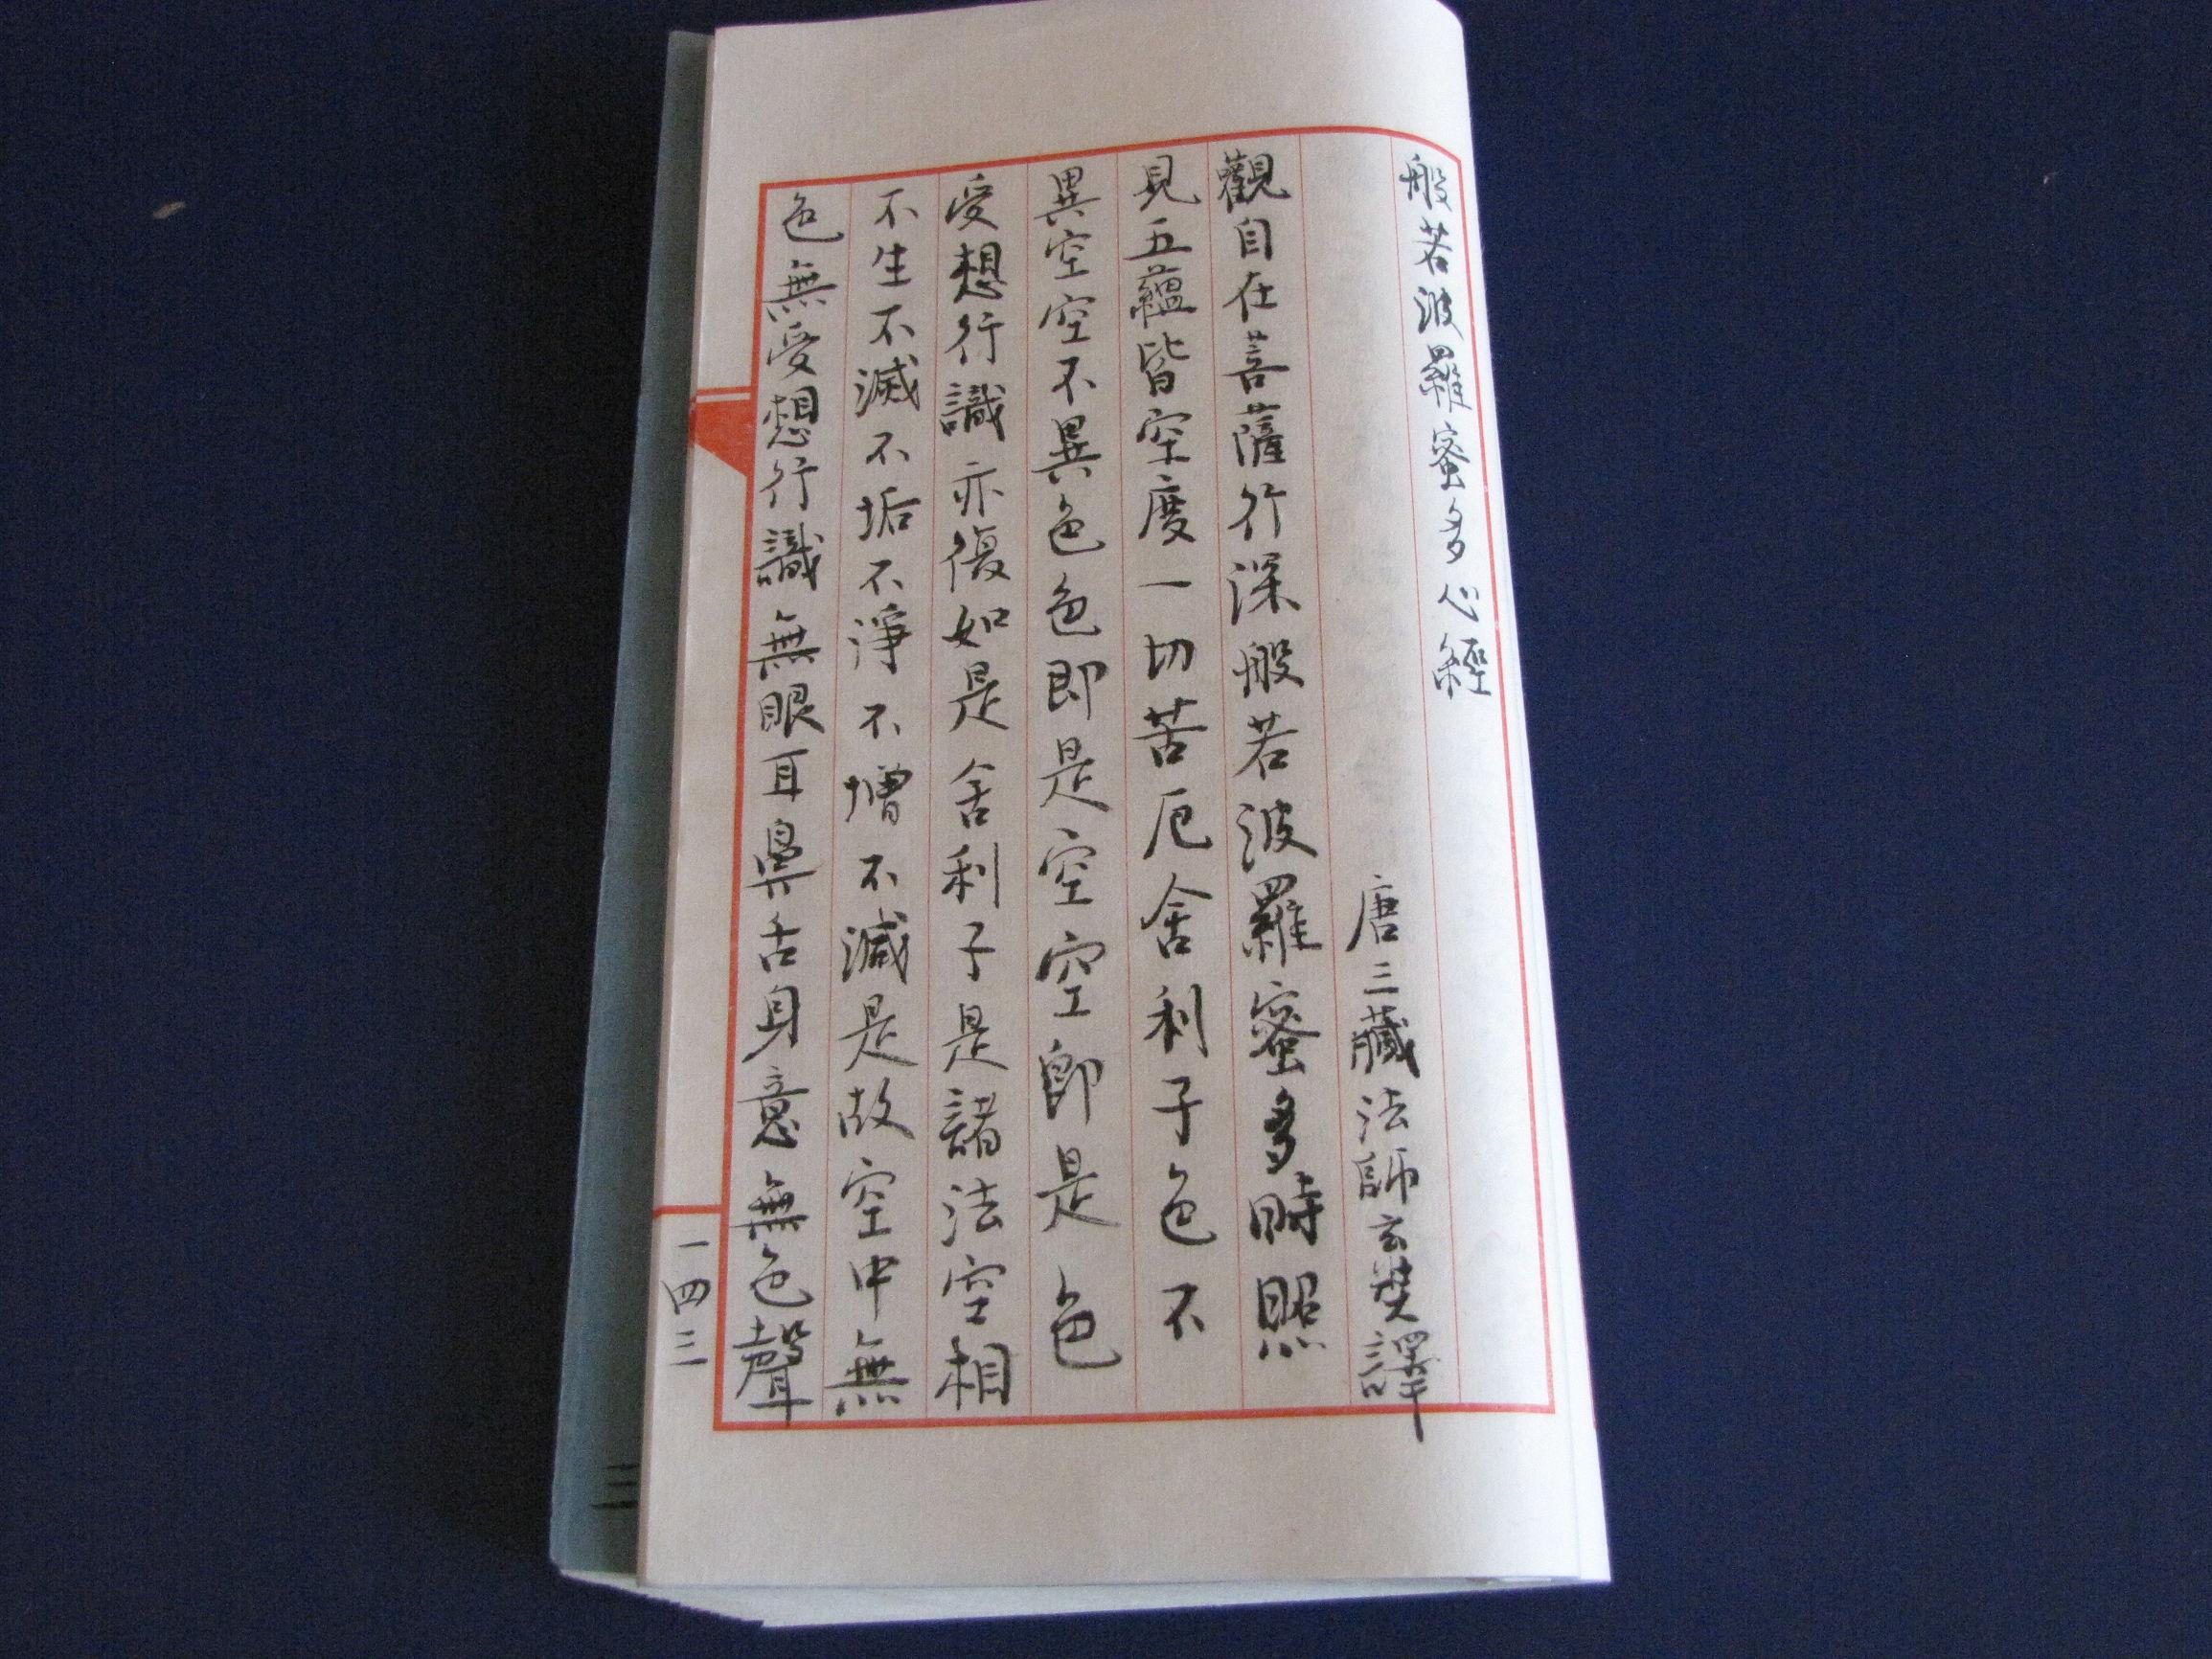 般若波羅蜜多心經
唐三藏法師玄奘譯
觀自在菩薩行深般若波羅蜜多時照
見五蘊皆空度一切苦厄舍利子色不
異空空不異色色即是空空即是色
受想行識亦復如是舍利子是諸法空相
不生不滅不垢不淨不增不減是故空中無
色無受想行識無眼耳鼻舌身意無色聲
一四三
三